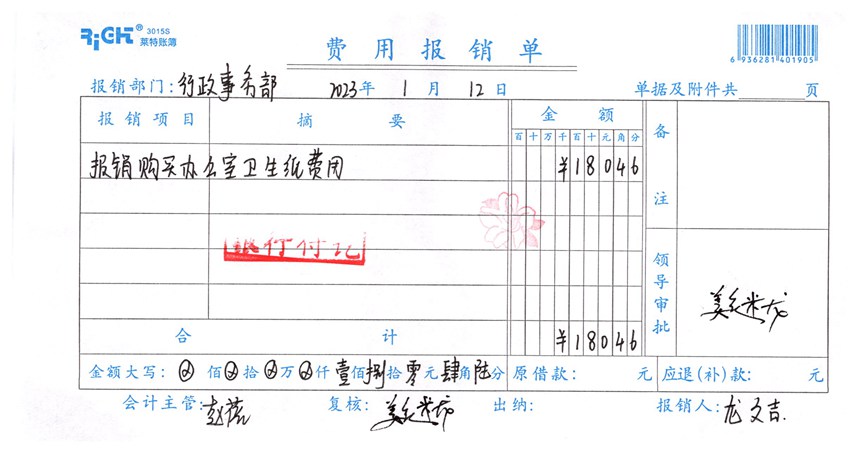 RiCHT® 3015S
莱特账簿
费用报销单
6 936281 401905
报销部门:行政事务部 2023年 1月 12日 单据及附件共 页
报销项目 摘要 金额 备注
百十万千百十元角分
报销购买办公室卫生纸费用 ¥18046
银行付讫
领导审批
合计 ¥18046
金额大写: 佰 拾 万 仟 壹佰捌拾零元肆角陆分 原借款: 元 应退(补)款: 元
会计主管: 复核: 出纳: 报销人:龙文吉